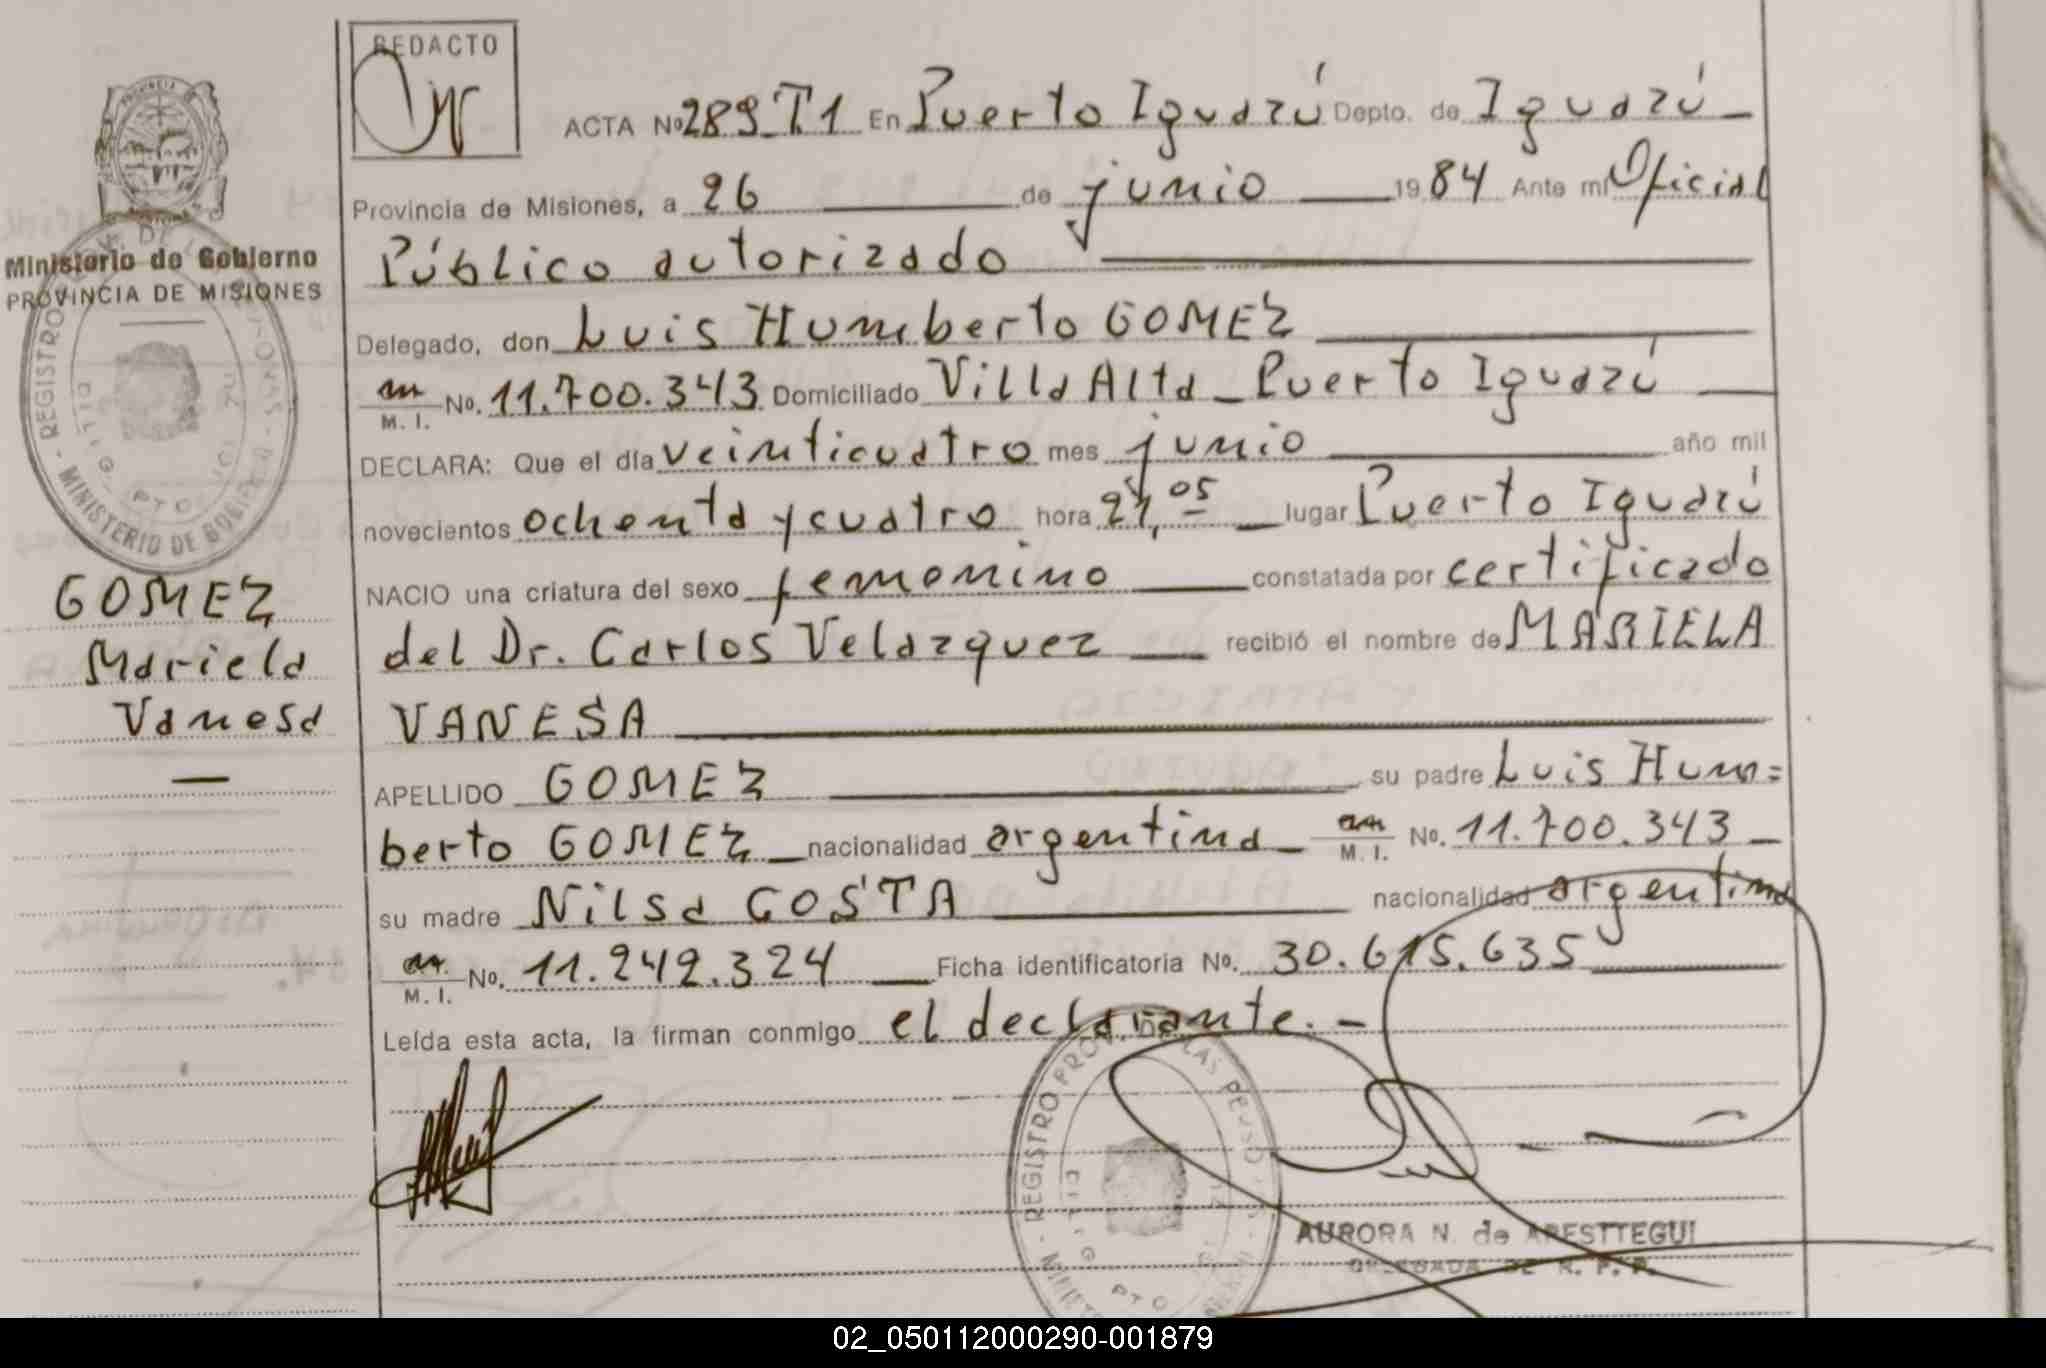 REDACTO
ACTA Nº 289 T1 En Puerto Iguazú Depto. de Iguazú
Provincia de Misiones, a 26 de junio 1984 Ante mi Oficial
Público autorizado
Ministerio de Gobierno
PROVINCIA DE MISIONES
Delegado, don Luis Humberto GOMEZ
M. I. No. 11.700.343 Domiciliado Villa Alta - Puerto Iguazú
DECLARA: Que el día veinticuatro mes junio año mil
novecientos ochenta y cuatro hora 21,05 lugar Puerto Iguazú
NACIO una criatura del sexo femenino constatada por certificado
del Dr. Carlos Velazquez recibió el nombre de MARIELA
VANESA
GOMEZ
Mariela
Vanesa
APELLIDO GOMEZ su padre Luis Hum=
berto GOMEZ nacionalidad argentina M. I. No. 11.700.343
su madre Nilsa COSTA nacionalidad argentina
M. I. No. 11.242.324 Ficha identificatoria No. 30.615.635
Leída esta acta, la firman conmigo el declarante. -
AURORA N. de ARESTTEGUI
DELEGADA DE R. P. P.
02_050112000290-001879